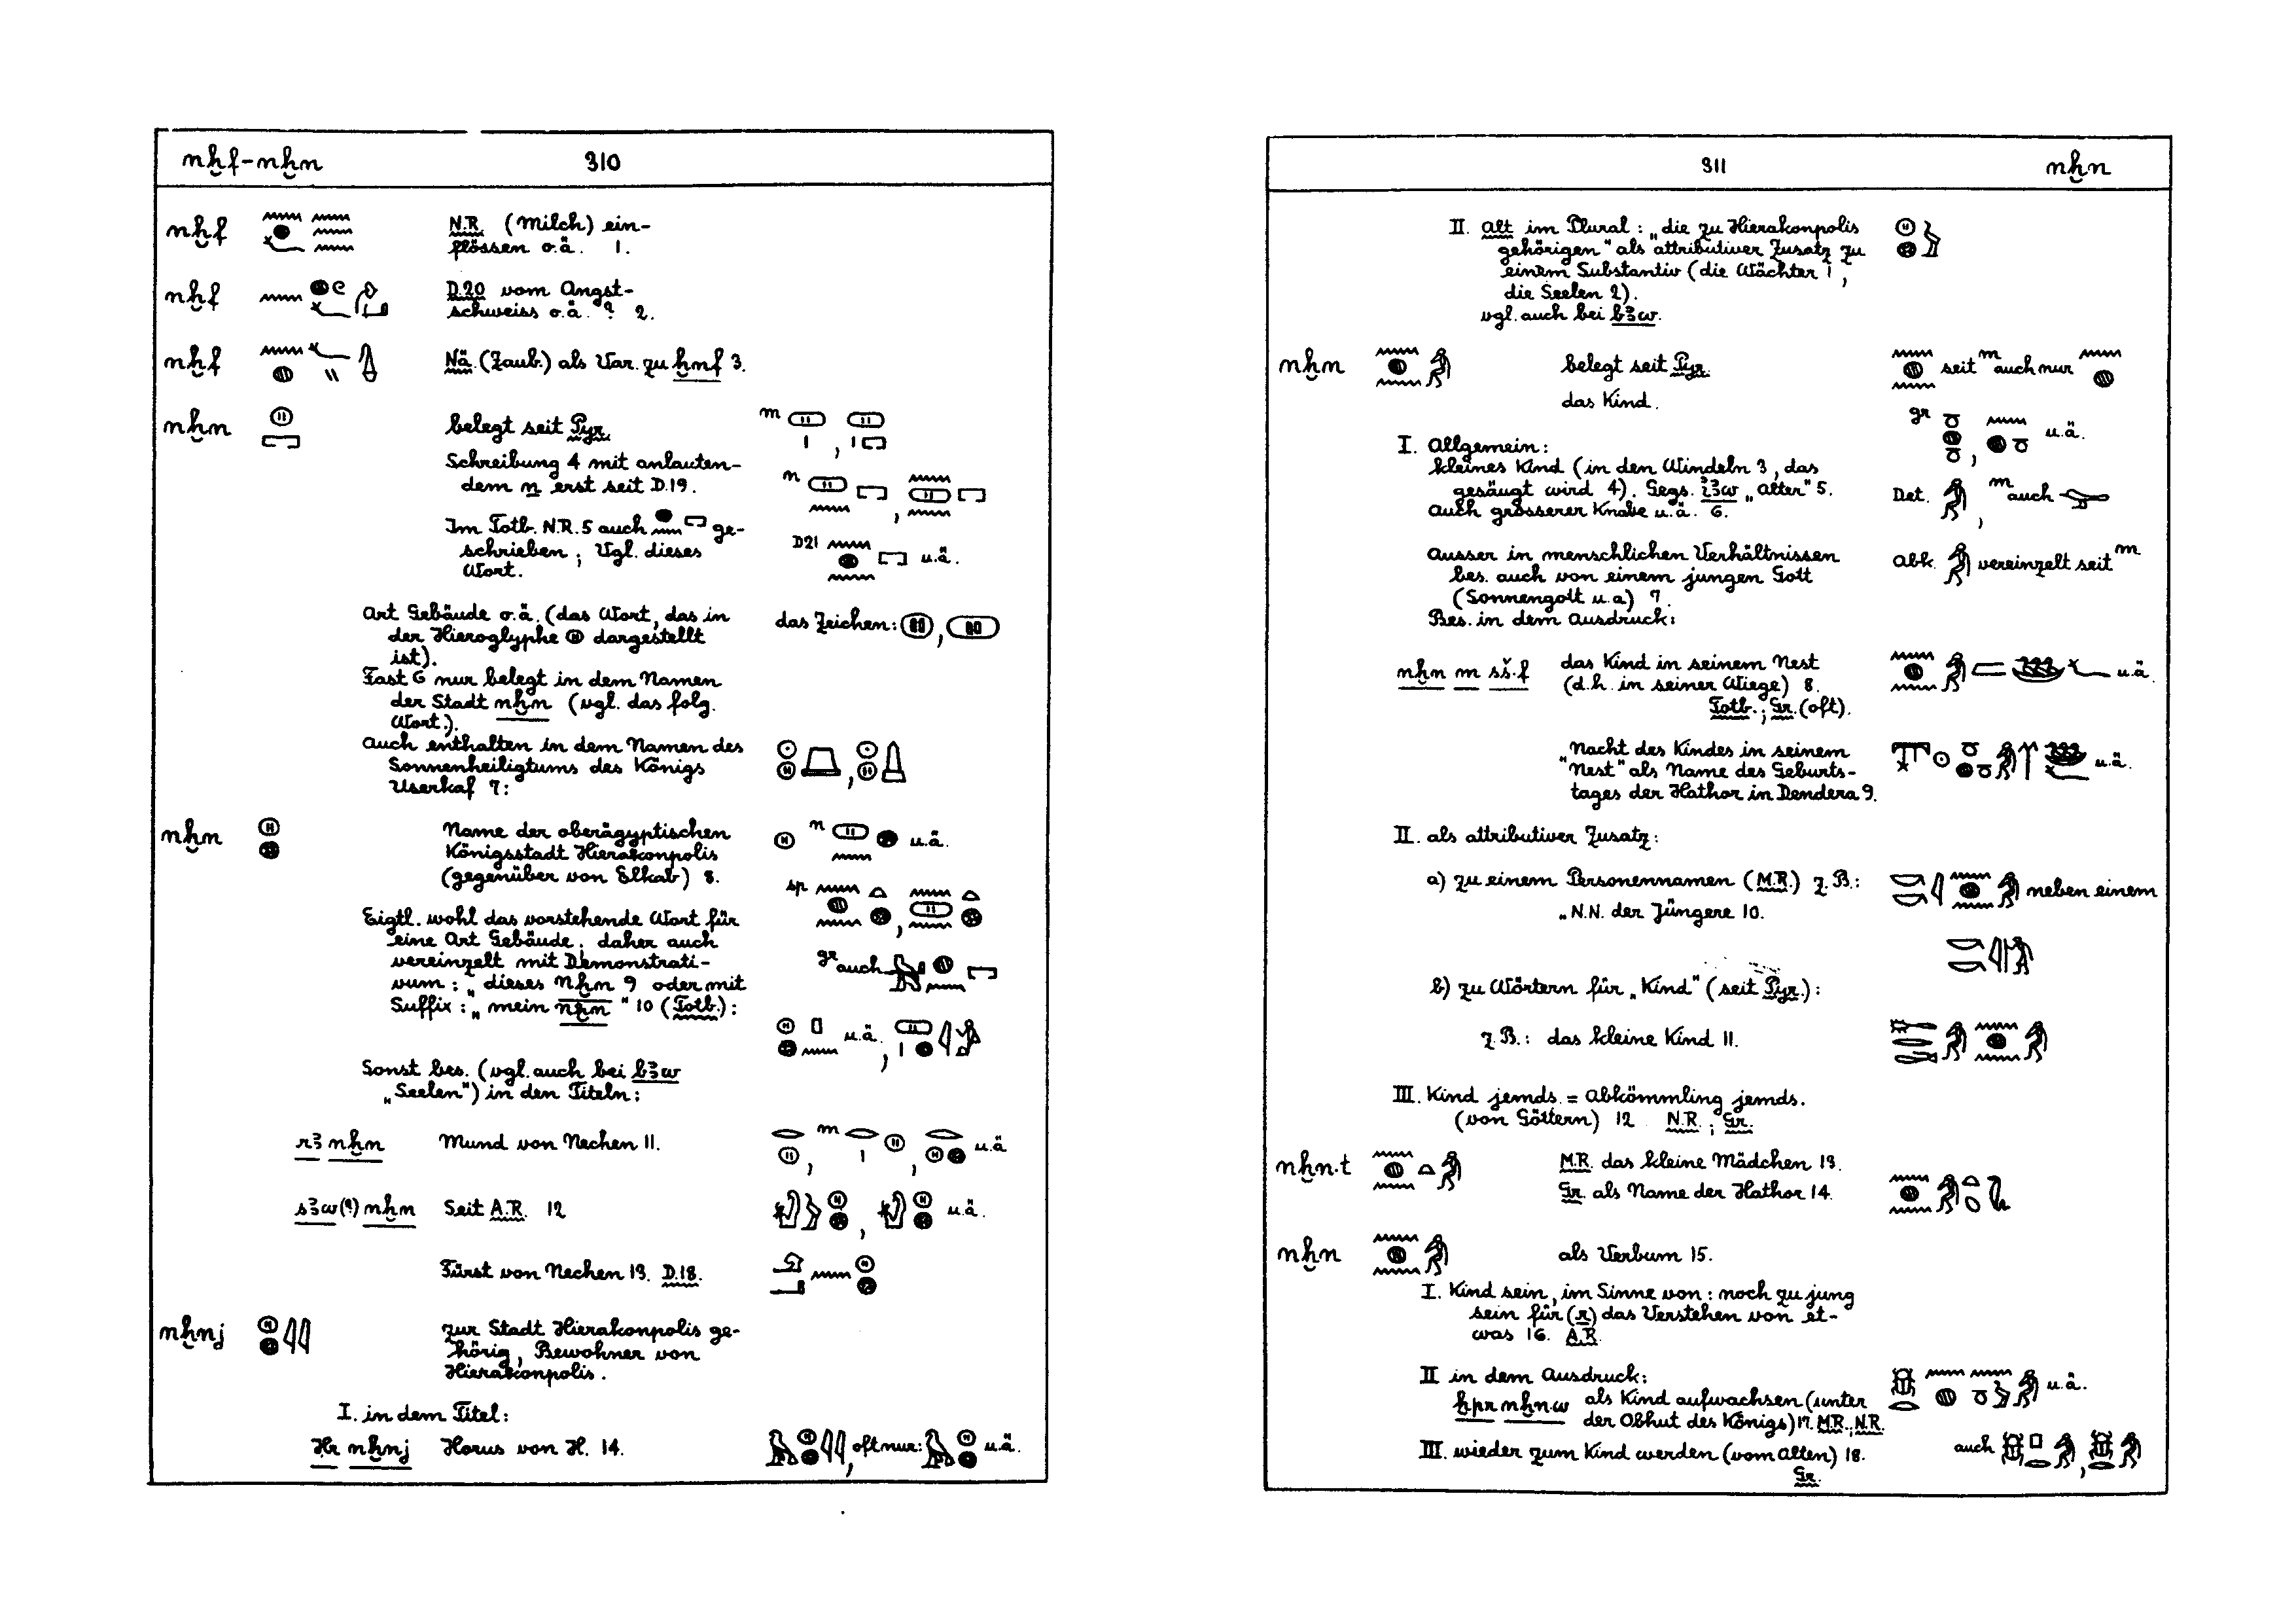 nḫf-nḫn 310
nḫf N.R. (Milch) ein-
flössen o.ä. 1.
nḫf D.20 vom Angst-
schweiss o.ä. ? 2.
nḫf Nä. (Zaub.) als Var. zu ḫnf 3.
nḫn belegt seit Pyr.
Schreibung 4 mit anlauten-
dem n erst seit D.19.
Im Totb. N.R. 5 auch ge-
schrieben; Vgl. dieses
Wort.
m
n
D21 u.ä.
Art Gebäude o.ä. (das Wort, das in
der Hieroglyphe dargestellt
ist).
das Zeichen:
Fast 6 nur belegt in dem Namen
der Stadt nḫn (vgl. das folg.
Wort.).
Auch enthalten in dem Namen des
Sonnenheiligtums des Königs
Userkaf 7:
nḫn Name der oberägyptischen
Königsstadt Hierakonpolis
(gegenüber von Elkab) 8.
n u.ä.
sp
gr auch
Eigtl. wohl das vorstehende Wort für
eine Art Gebäude; daher auch
vereinzelt mit Demonstrati-
vum: „dieses nḫn 9 oder mit
Suffix: „mein nḫn" 10 (Totb.):
u.ä.
Sonst bes. (vgl. auch bei bꜣw
„Seelen") in den Titeln:
rꜣ nḫn Mund von Nechen 11. m u.ä.
sꜣw(?) nḫn Seit A.R. 12 u.ä.
Fürst von Nechen 13. D.18.
nḫnj zur Stadt Hierakonpolis ge-
hörig, Bewohner von
Hierakonpolis.
I. in dem Titel:
Ḥr nḫnj Horus von H. 14. oft nur: u.ä.
311 nḫn
II. Alt im Plural: „die zu Hierakonpolis
gehörigen" als attributiver Zusatz zu
einem Substantiv (die Wächter 1,
die Seelen 2).
vgl. auch bei bꜣw.
nḫn belegt seit Pyr. seit m auch nur
das Kind.
gr u.ä.
I. Allgemein:
kleines Kind (in den Windeln 3, das
gesäugt wird 4). Gegs. iꜣw „Alter" 5.
Auch grösserer Knabe u.ä. 6.
Det. m auch
Ausser in menschlichen Verhältnissen
bes. auch von einem jungen Gott
(Sonnengott u.a) 7.
Bes. in dem Ausdruck:
Abk. vereinzelt seit m
nḫn m sš.f das Kind in seinem Nest
(d.h. in seiner Wiege) 8.
Totb.; Gr. (oft).
u.ä.
„Nacht des Kindes in seinem
Nest" als Name des Geburts-
tages der Hathor in Dendera 9.
u.ä.
II. als attributiver Zusatz:
a) zu einem Personennamen (M.R.) z.B.: neben einem
„N.N. der Jüngere 10.
b) zu Wörtern für „Kind" (seit Pyr.):
z.B.: das kleine Kind 11.
III. Kind jemds. = Abkömmling jemds.
(von Göttern) 12 N.R.; Gr.
nḫn.t M.R. das kleine Mädchen 13.
Gr. als Name der Hathor 14.
nḫn als Verbum 15.
I. Kind sein, im Sinne von: noch zu jung
sein für (r) das Verstehen von et-
was 16. A.R.
II in dem Ausdruck:
ḫpr nḫn.w als Kind aufwachsen (unter
der Obhut des Königs) 17. M.R., N.R.
u.ä.
III. wieder zum Kind werden (vom Alten) 18.
Gr.
auch